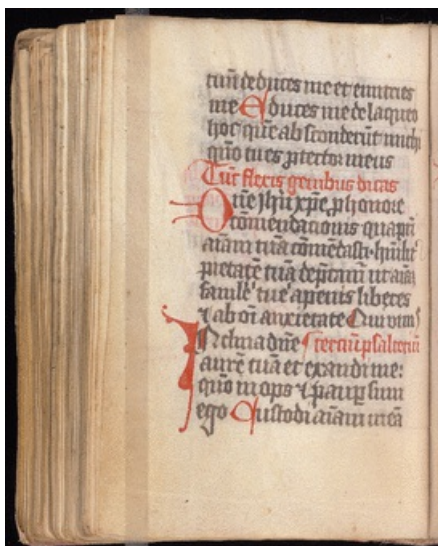 tuū deduces me et enutries
me Educes me de laqueo
hoc quē absconderūt michi
qm̄o tu es ꝓtector meus
Tūc flexis genibus dicas
Dn̄e Jhū xp̄e ꝓ honore
cōmendacionis qua pr̄i
aīam tuā cōmēdasti hūilit̄
pietatē tuā dep̄cam̄ ut aīaꝫ
famlē tue a penis liberes
⁊ ab oī anxietate Qui viuis
Inclina dn̄e terciū psalteriū
aurē tuā et exaudi me:
qm̄o inops ⁊ paup̄ sum
ego Custodi aīam meā